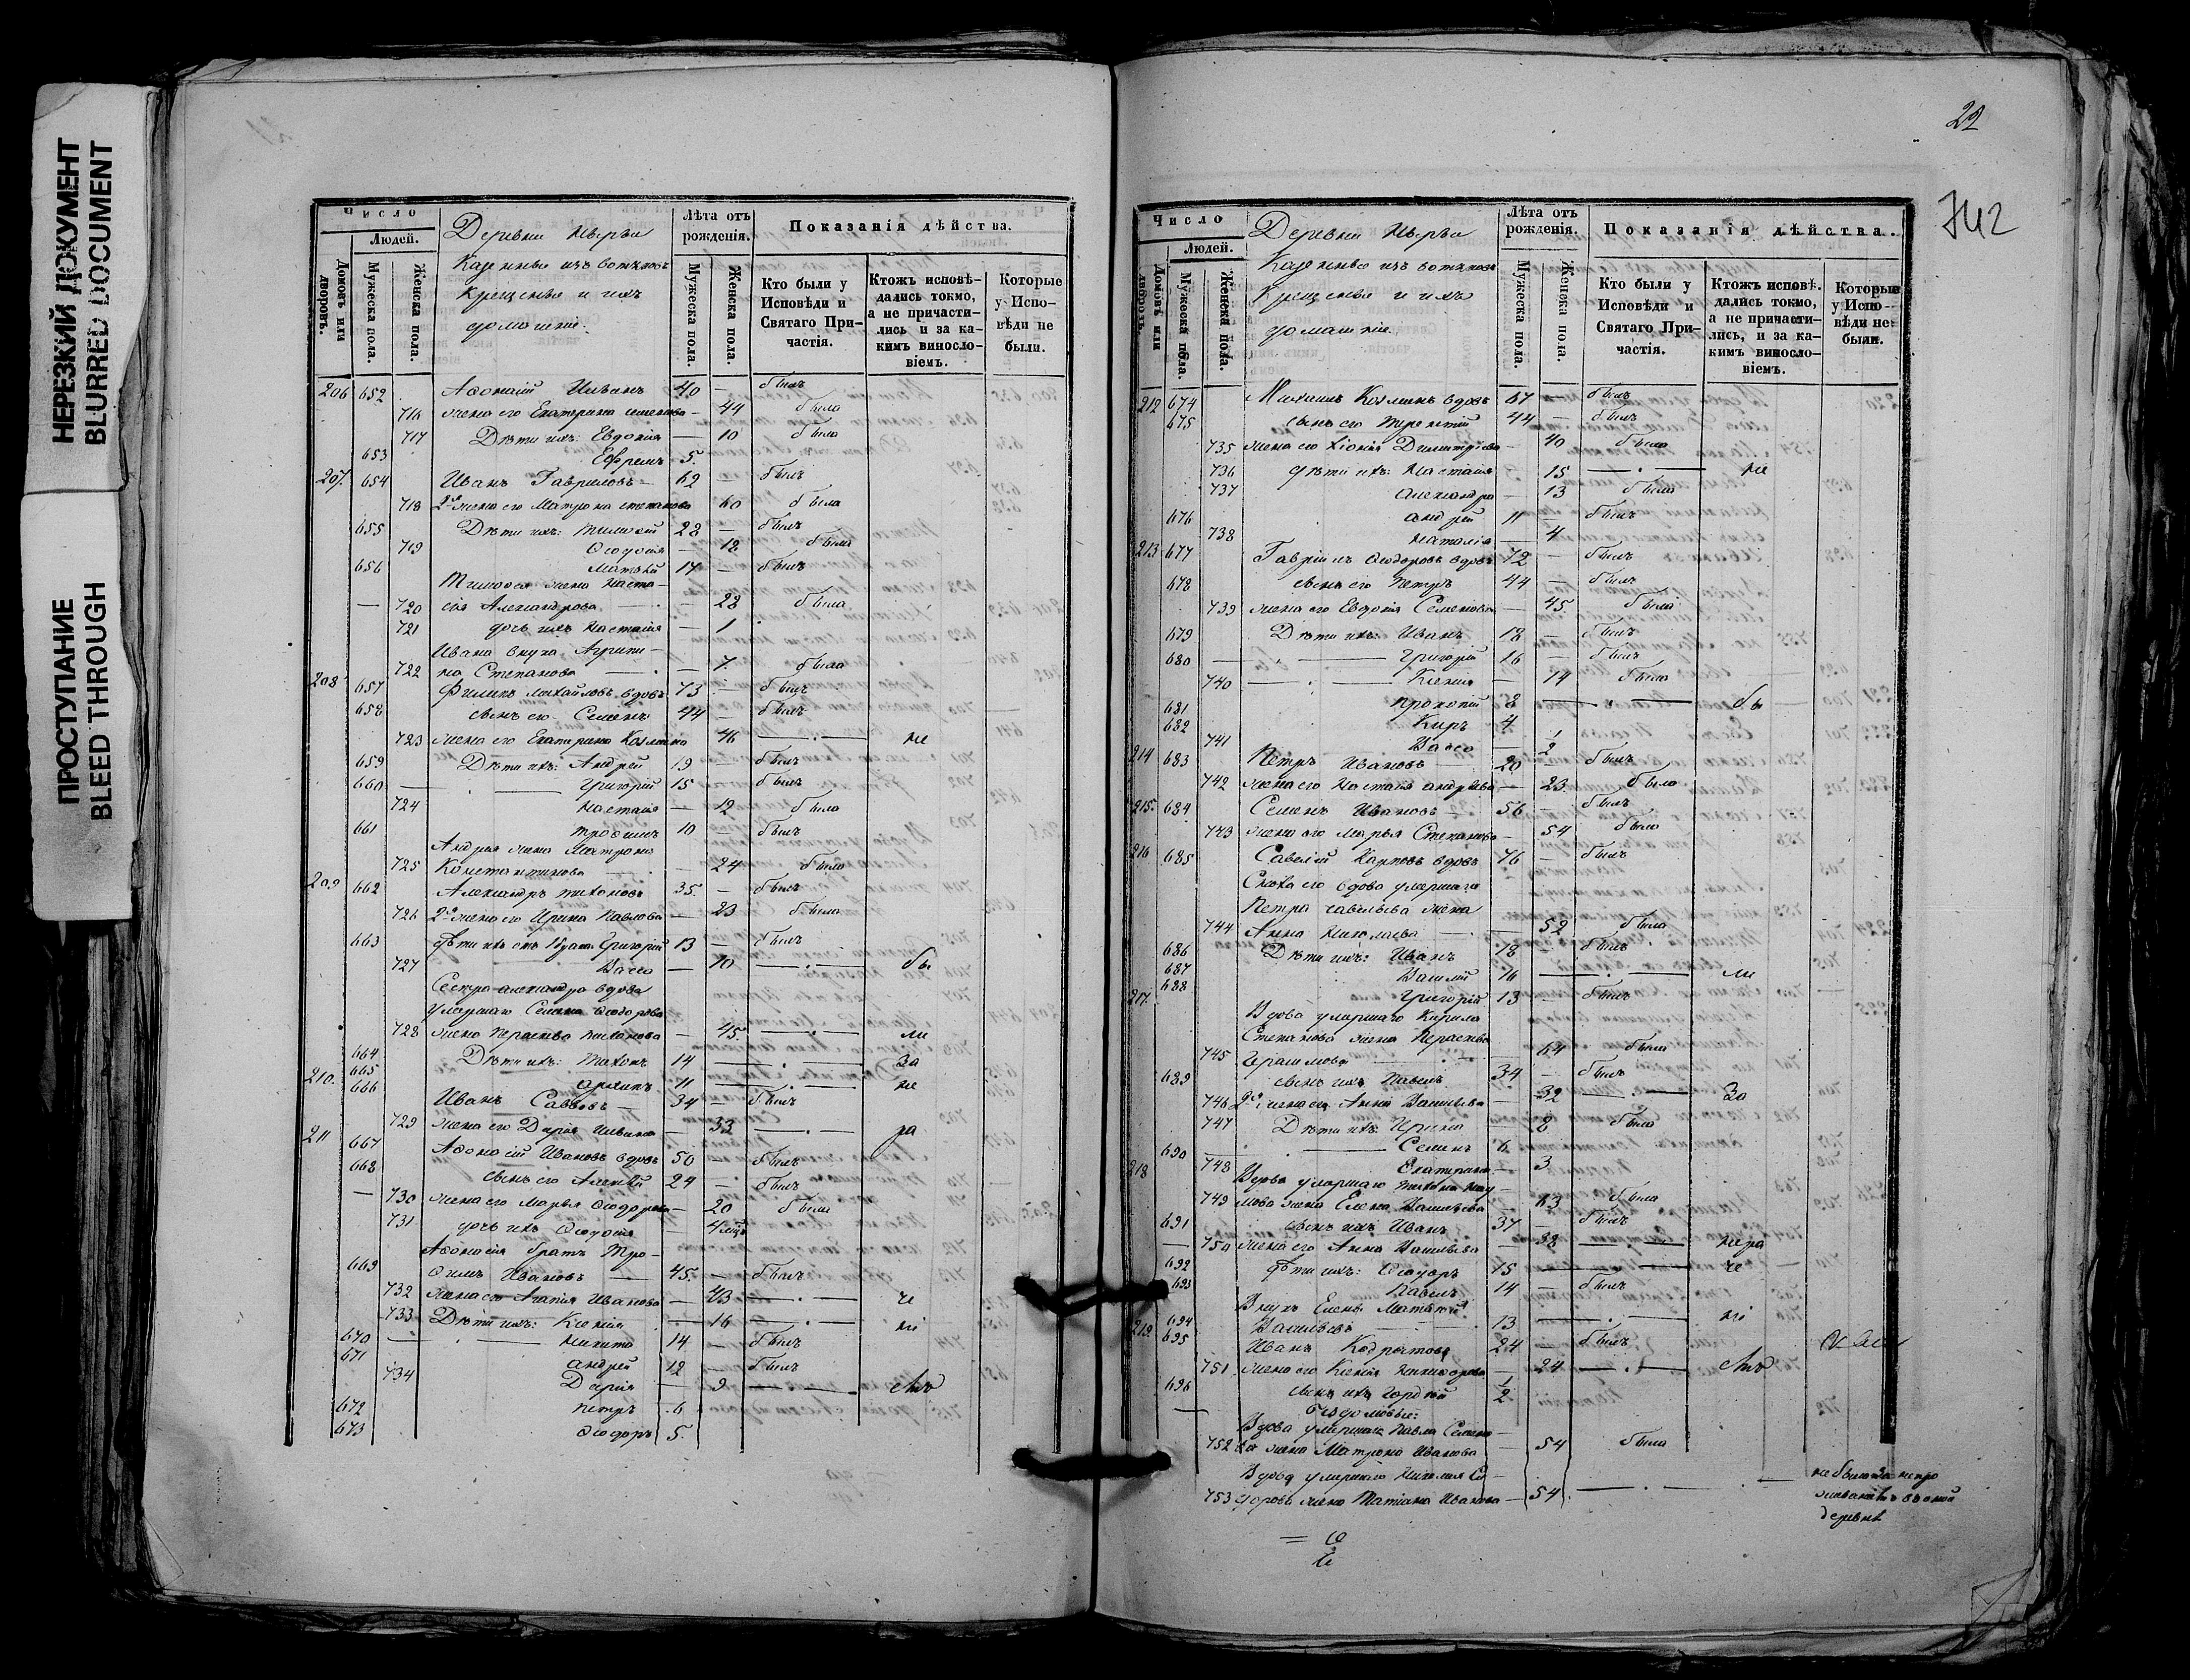 НЕРЕЗКИЙ ДОКУМЕНТ
BLURRED DOCUMENT
ПРОСТУПАНИЕ
BLEED THROUGH
Число
Людей.
Домовъ или дворовъ.
Мужеска пола.
Женска пола.
Деревни
Казенные изъ вотяковъ
Крещеные и ихъ
домашніе.
Лѣта отъ рожденія.
Мужеска пола.
Женска пола.
Показанія дѣйства.
Кто были у Исповѣди и Святаго Причастія.
Ктожъ исповѣдались токмо, а не причастились и за какимъ винословіемъ.
Которые у Исповѣди не были.
206 652 Аѳонасій 40 — былъ
716 жена его Екатерина Семенова — 44 была
717 Дѣти ихъ: Евдокія — 10 была
653 Ефремъ 5.
207. 654 Иванъ Гавриловъ — 62 былъ
718 2я жена его Матрона Степанова 60 была
655 Дѣти ихъ: Тимоѳей 28 — былъ
719 Ѳеодосія — 18 была
656 Матѳей 17 — былъ
Тимоѳея жена Наста-
— 720 сія Александрова — 28 была
721 дочь ихъ Настасія — 1
Ивана внука Агрипи-
722 на Степанова — 7. была
208 657 Филипъ Михайловъ вдовъ 73 — былъ
658 сынъ его Семенъ 44 — былъ
723 жена его Екатерина Козмина 46 —·— не
659 Дѣти ихъ: Андрей 19 — былъ
660 — Григорій 15 — былъ
724 Настасія — 12 была
661 Трофимъ 10 — былъ
Андрея жена Матрона
725 Константинова — 24 была
209 662 Александръ Тихоновъ 35. — былъ
726 2я жена его Ирина Павлова — 23 была
663 Дѣти ихъ Григорій 13 — былъ
727 Васса — 10 —·— бы
Сестра Александра вдова
умершаго Семена Ѳеодорова
728 жена Параскева Тихонова — 45. —·— ли
664 Дѣти ихъ: Тихонъ 14 —·— За
210. 665 11 —·— не
666 Иванъ Саввовъ — 34 — былъ
729 жена его Дарія — 33 —·— ра
211 667 Аѳонасій Ивановъ вдовъ 50 — былъ
668 сынъ его Алексѣй 24 — былъ
— 730 жена его Марья Ѳеодорова — 20 была
731 дочь ихъ Ѳеодосія —
Аѳонасія братъ Тро-
669 фимъ Ивановъ — 45. — былъ
732 жена его Агапія Иванова — 43 —·— че
733 Дѣти ихъ: Ксенія — 16 —·— ні
670 Никита 14 — былъ
671 Андрей 12 — былъ
734 Дарія — 9 —·— емъ
672 Петръ 6
673 Ѳеодоръ 5.
22
742
Число
Людей.
Домовъ или дворовъ.
Мужеска пола.
Женска пола.
Деревни
Казенные изъ вотяковъ
Крещеные и ихъ
домашніе.
Лѣта отъ рожденія.
Мужеска пола.
Женска пола.
Показанія дѣйства.
Кто были у Исповѣди и Святаго Причастія.
Ктожъ исповѣдались токмо, а не причастились, и за какимъ винословіемъ.
Которые у Исповѣди не были.
212 674 Михаилъ Козминъ вдовъ 67 — былъ
675 сынъ его Терентій 44 — былъ
735 жена его Хіонія Димитріева — 40 была
736 дѣти ихъ: Настасія 15 —·— не
737 Александра — 13 была
676 Андрей 11 — былъ
738 Наталія — 4
213 677 Гавріилъ Ѳеодоровъ вдовъ 72 — былъ
678 сынъ его Петръ 44 — былъ
739 жена его Евдокія Семенова — 45. была
679 Дѣти ихъ: Иванъ 18 — былъ
680 — Григорій 16 — былъ
740 — Ксенія — 14 была
681 Прокопій 8 —·— бы
682 Киръ 4
741 Васса — 1/2
214 683 Петръ Ивановъ 20 былъ
742 жена его Настасія Андреева — 23 была
215. 684 Семенъ Ивановъ 56 — былъ
743 жена его Марья Степанова — 54 была
216 685 Савелій Карповъ вдовъ 76 — былъ
Сноха его вдова умершаго
Петра Савельева жена
744 Анна Николаева — 52 была
686 Дѣти ихъ: Иванъ 18 — былъ
687 Василій 16 —·— ли
688 Григорій 13 — былъ
217. Вдова умершаго Кирила
Степанова жена Параскева
745 Герасимова — 64 была
689 сынъ ихъ Павелъ 34 — былъ
746 2я жена его Анна Васильева — 32 —·— За
747 Дѣти ихъ: Ирина 8 была
690 — Семенъ 6.
748 Екатерина — 3
218 Вдова умершаго Тихона Нау-
749 мова жена Елена Васильева — 63 была
691 сынъ ихъ Иванъ 37 — былъ
— 750 жена его Анна Васильева — 38 —·— нера
692 дѣти ихъ: Ѳеодоръ 15 —·— че
693 Павелъ 14 — былъ
Внукъ Елены Матѳей
694 Васильевъ — 13 —·— ні
219 695 Иванъ Кодратовъ 24 — былъ
751 жена его Ксенія Никифорова — 24 —·— емъ
696 сынъ ихъ Гордѣй 1/2
Бездомовые:
Вдова умершаго Павла Семено-
752 ва жена Матрона Иванова — 54 была
Вдова умершаго
753 жена Татіана Иванова — 54 —·— не была за непро
живаніемъ въ оной
деревнѣ